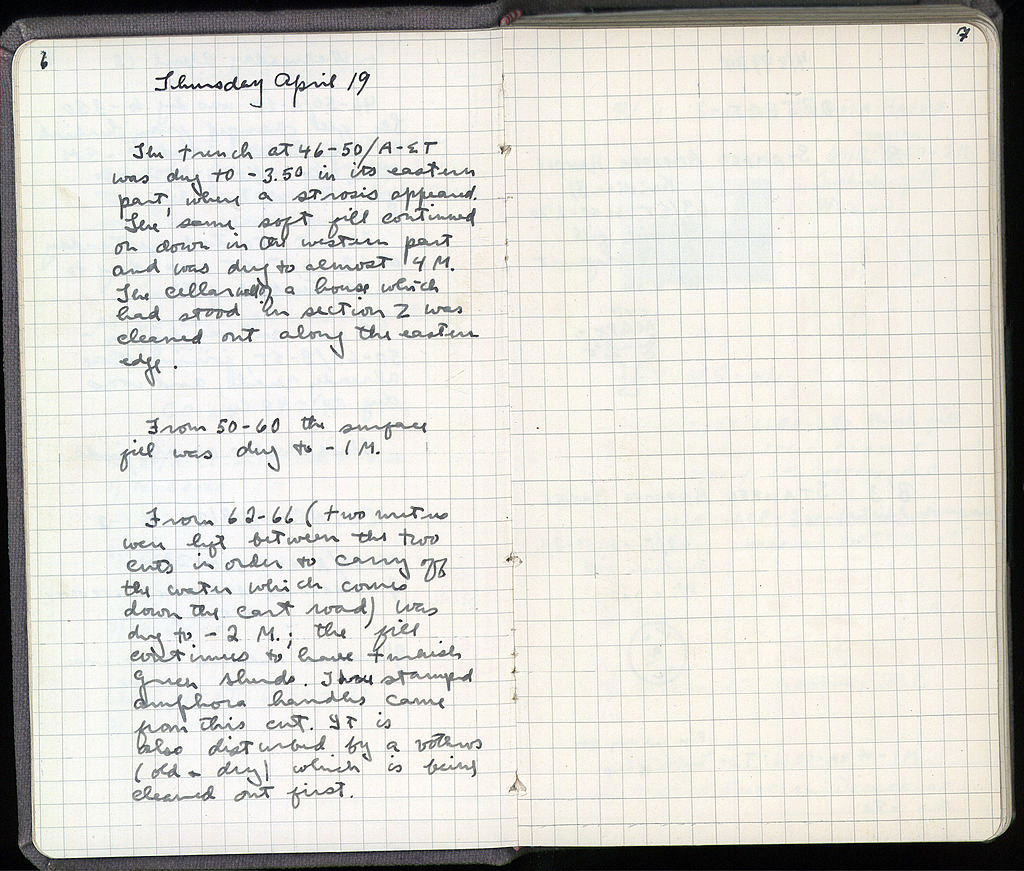 6
Thursday April 19
The trench at 46-50/A-ΣT
was dug to -3.50 in its eastern
part, where a strosis appeared.
The same soft fill continued
on down in the western part
and was dug to almost 4 M.
The cellar well of a house which
had stood in section Z was
cleaned out along the eastern
edge.
From 50-60 the surface
fill was dug to -1 M.
From 62-66 (two metres
were left between the two
cuts in order to carry off
the water which comes
down the cart road) was
dug to -2 M.; the fill
continues to have Turkish
Green sherds. Three stamped
amphora handles came
from this cut. It is
also disturbed by a vothros
(old + dry) which is being
cleaned out first.
7